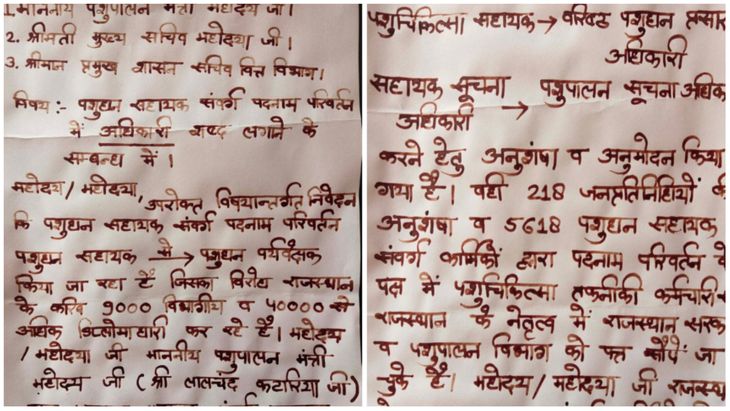 1. माननीय पशुपालन मंत्री महोदय जी।
2. श्रीमती मुख्य सचिव महोदया जी।
3. श्रीमान प्रमुख शासन सचिव वित्त विभाग।
विषय :- पशुधन सहायक संवर्ग पदनाम परिवर्तन
में अधिकारी शब्द लगाने के
सम्बन्ध में।
महोदय/महोदया,
उपरोक्त विषयान्तर्गत निवेदन
कि पशुधन सहायक संवर्ग पदनाम परिवर्तन
पशुधन सहायक से → पशुधन पर्यवेक्षक
किया जा रहा है जिसका विरोध राजस्थान
के करिब 9000 विभागीय व 40000 से
अधिक डिप्लोमाधारी कर रहे हैं। महोदय
/महोदया जी माननीय पशुपालन मंत्री
महोदय जी (श्री लालचंद कटारिया जी)
पशुचिकित्सा सहायक → वरिष्ठ पशुधन प्रसार
अधिकारी
सहायक सूचना → पशुपालन सूचना अधिक
अधिकारी
करने हेतु अनुशंषा व अनुमोदन किया
गया है। वही 218 जनप्रतिनिधियों
अनुशंषा व 5618 पशुधन सहायक
संवर्ग कार्मिकों द्वारा पदनाम परिवर्तन
पक्ष में पशुचिकित्सा तकनीकी कर्मचारी
राजस्थान के नेतृत्व में राजस्थान सरक
व पशुपालन विभाग को पत्र सौंपे जा
चुके हैं। महोदय/महोदया जी राजस्